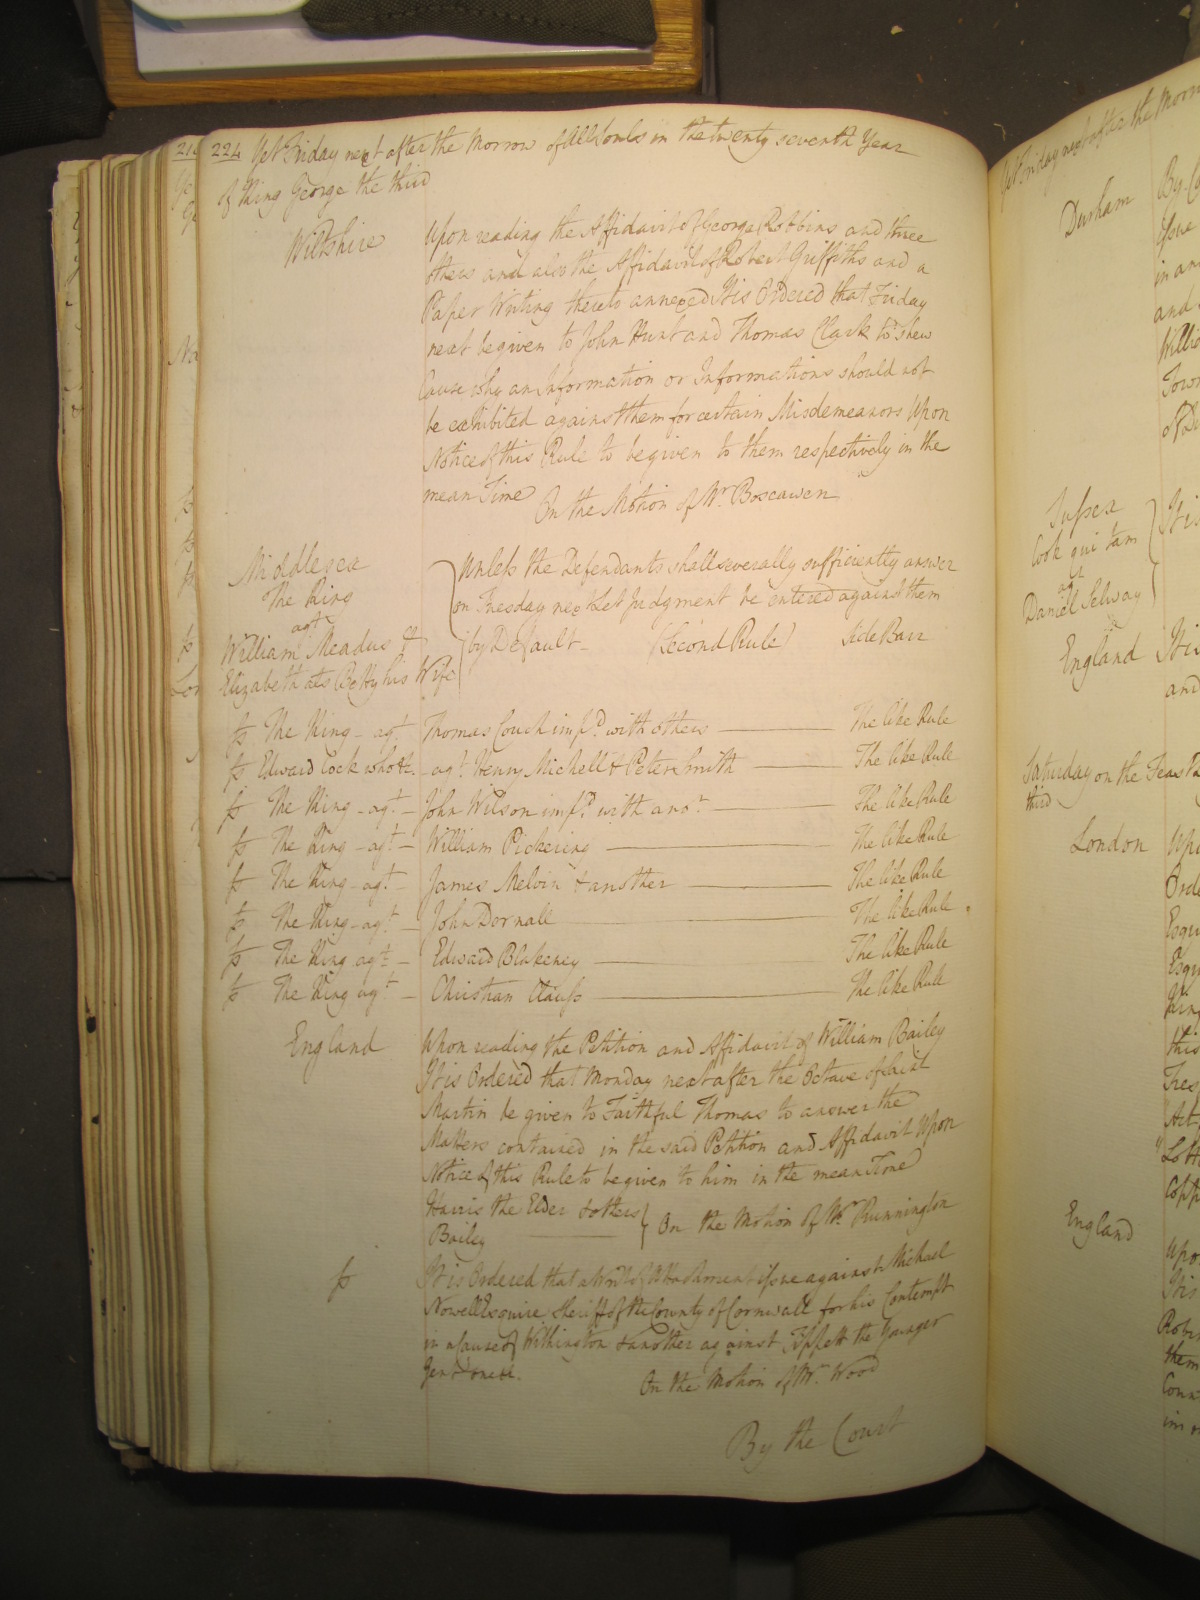 224 Yet Friday next after the Morrow of All Souls in the twenty seventh Year
of King George the third
Wiltshire
Upon reading the Affidavit of George Robbins and three
others and also the Affidavit of Robert Griffiths and a
Paper Writing thereto annexed It is Ordered that Friday
next be given to John Hunt and Thomas Clark to shew
Cause why an Information or Informations should not
be exhibited against them for certain Misdemeanors Upon
Notice of this Rule to be given to them respectively in the
mean Time
On the Motion of Mr. Boscawen
Middlesex
The King
agt
William Meadus &
Elizabeth als Betty his Wife
Unless the Defendants shall severally sufficiently answer
on Tuesday next Let Judgment be entered against them
by Default (Second Rule) Side Barr
ss The King - agt. Thomas Couch impd. with others The like Rule
ss Edward Cock who &c. agt. Henry Michell & Peter Smith The like Rule
ss The King - agt. John Wilson impd. with anor The like Rule
ss The King - agt. William Pickering The like Rule
ss The King - agt. James Melvin & another The like Rule
ss The King - agt. John Dornall The like Rule
ss The King agt. Edward Blakeney The like Rule
ss The King agt. Christian The like Rule
England
Upon reading the Petition and Affidavit of William Bailey
It is Ordered that Monday next after the Octave of Saint
Martin be given to Faithful Thomas to answer the
Matters contained in the said Petition and Affidavit Upon
Notice of this Rule to be given to him in the mean Time
Harris the Elder & others
Bailey
On the Motion of Mr. Runnington
ss
It is Ordered that a Writ of Attachment issue against Michael
Nowell Esquire Sheriff of the County of Cornwall for his Contempt
in a Cause of Withington & another against Tippett the Younger
Gent one &c.
On the Motion of Mr. Wood
By the Court
Yet Friday next after the Morrow
Durham
By
issue
in
and
Sussex
Cook qui tam
agt
Daniel Selway
It is
England
It is
and
Saturday on the Feast
third
London
Upon
Esqu
this
England
Upon